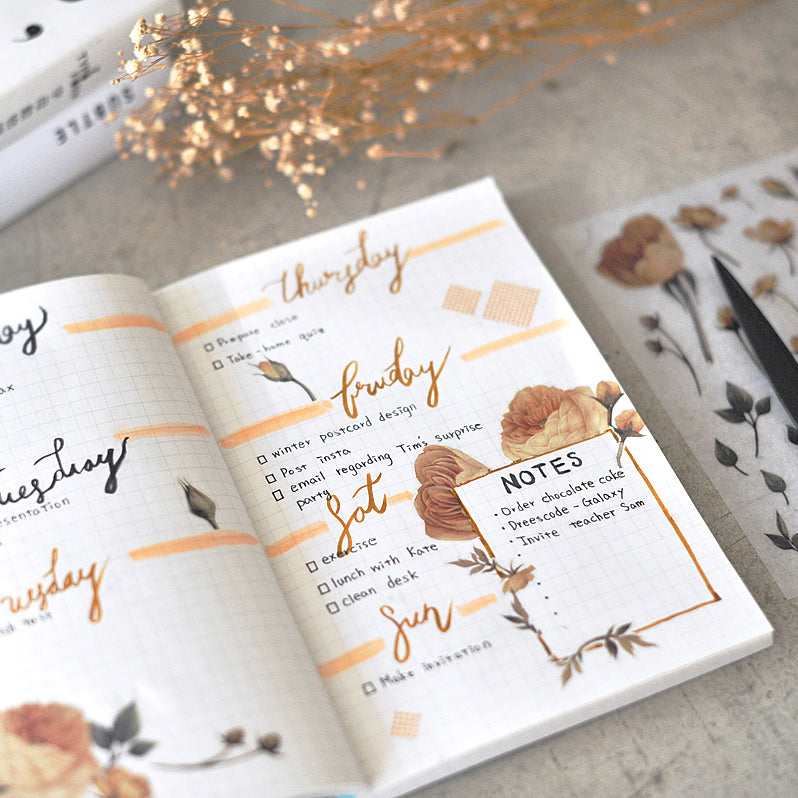 SUBTLE
Tuesday
Thursday
Prepare close
Take-home quiz
friday
winter postcard design
Post insta
email regarding Tim's surprise
party
Sat
exercise
lunch with Kate
clean desk
Sun
Make invitation
NOTES
• Order chocolate cake
• Dreescode - Galaxy
• Invite teacher Sam